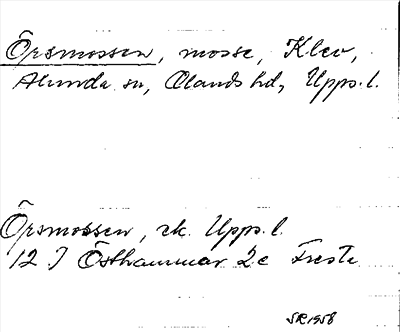 Örsmossen, mosse, Klev,
Alunda sn, Olands hd, Upps. l.
Örsmossen, ek. Upps. l.
12 I Östhammar 2c Freste
SR 1958